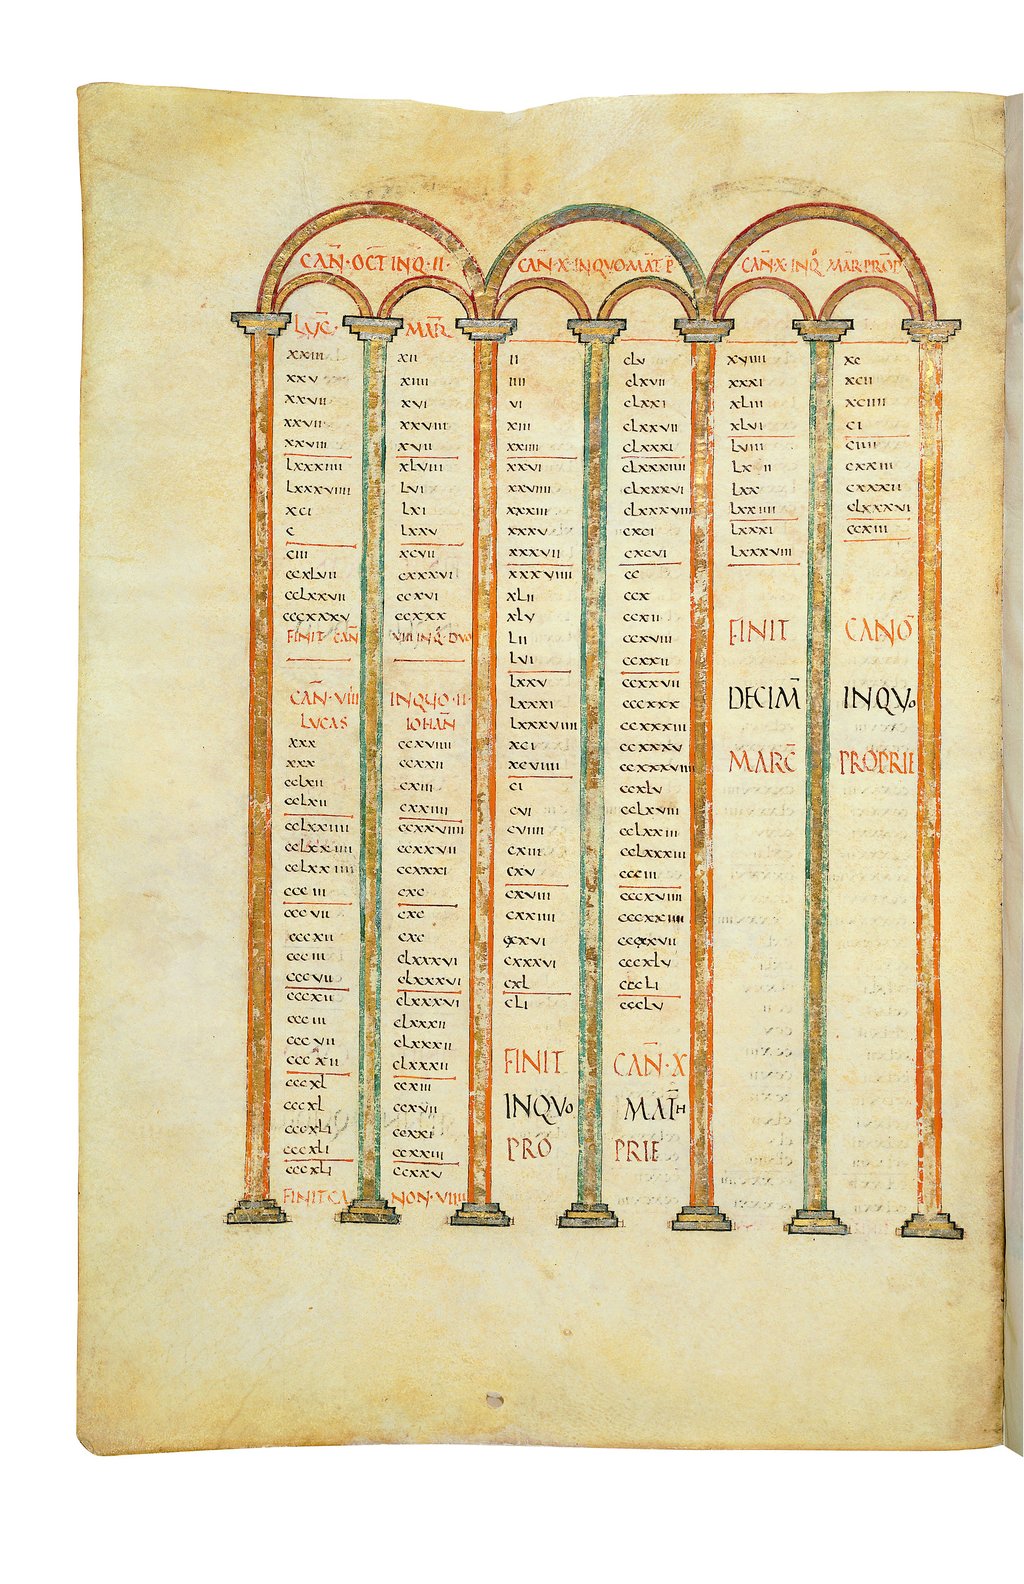 CAN̄·OCT̄ INQ·II·
LUC̄ MAR̄
xxiii xii
xxv xiiii
xxvii xvi
xxvii xxviii
xxviii xvii
Lxxxiiii xLviii
Lxxxviiii Lvi
xci Lxi
c Lxxv
ciii xcvii
ccxLvii cxxxvi
ccLxxvii ccxvi
cccxxxv ccxxx
FINIT CAN̄ VIII INQ DVO
CAN̄·VIIII INQUO·II·
LUCAS IOHAN̄
xxx ccxviiii
xxx ccxxii
ccLxii cxiii
ccLxii cxxiiii
ccLxxiiii ccxxviiii
ccLxxiiii ccxxvii
ccLxxiiii ccxxxi
ccciii cxc
cccvii cxc
cccxii cxc
ccciii cLxxxvi
cccvii cLxxxvi
cccxii cLxxxvi
ccciii cLxxxii
cccvii cLxxxii
cccxii cLxxxii
cccxL ccxiii
cccxL ccxvii
cccxLi ccxxi
cccxLi ccxxiii
cccxLi ccxxv
FINIT CA NON·VIIII
CAN̄·X·INQUO·MAT̄ P̄
ii cLv
iiii cLxvii
vi cLxxi
xiii cLxxvii
xxiiii cLxxxi
xxvi cLxxxiiii
xxviiii cLxxxvi
xxxiii cLxxxviii
xxxv cxci
xxxvii cxcvi
xxxviiii cc
xLii ccx
xLv ccxii
Lii ccxviii
Lvi ccxxii
Lxxv ccxxvii
Lxxxi ccxxx
Lxxxviiii ccxxxiii
xci ccxxxv
xcviiii ccxxxviii
ci ccxLv
cvi ccLxviii
cviiii ccLxxiii
cxiii ccLxxxiii
cxv ccciii
cxviii cccxviii
cxxiiii cccxxiiii
cxxvi cccxxvii
cxxxvi cccxLv
cxL cccLi
cLi cccLv
FINIT CAN̄·X
INQVo MAT̄H
PRO PRIE
CAN̄·X·INQo MAR̄·PROP̄
xviiii xc
xxxi xcii
xLiii xciiii
xLvi ci
Lviii ciiii
Lxii cxxiii
Lxx cxxxii
Lxxiiii cLxxxvi
Lxxxi ccxiii
Lxxxviii
FINIT CANO̅
DECIM̅ INQVo
MARC̅ PROPRII